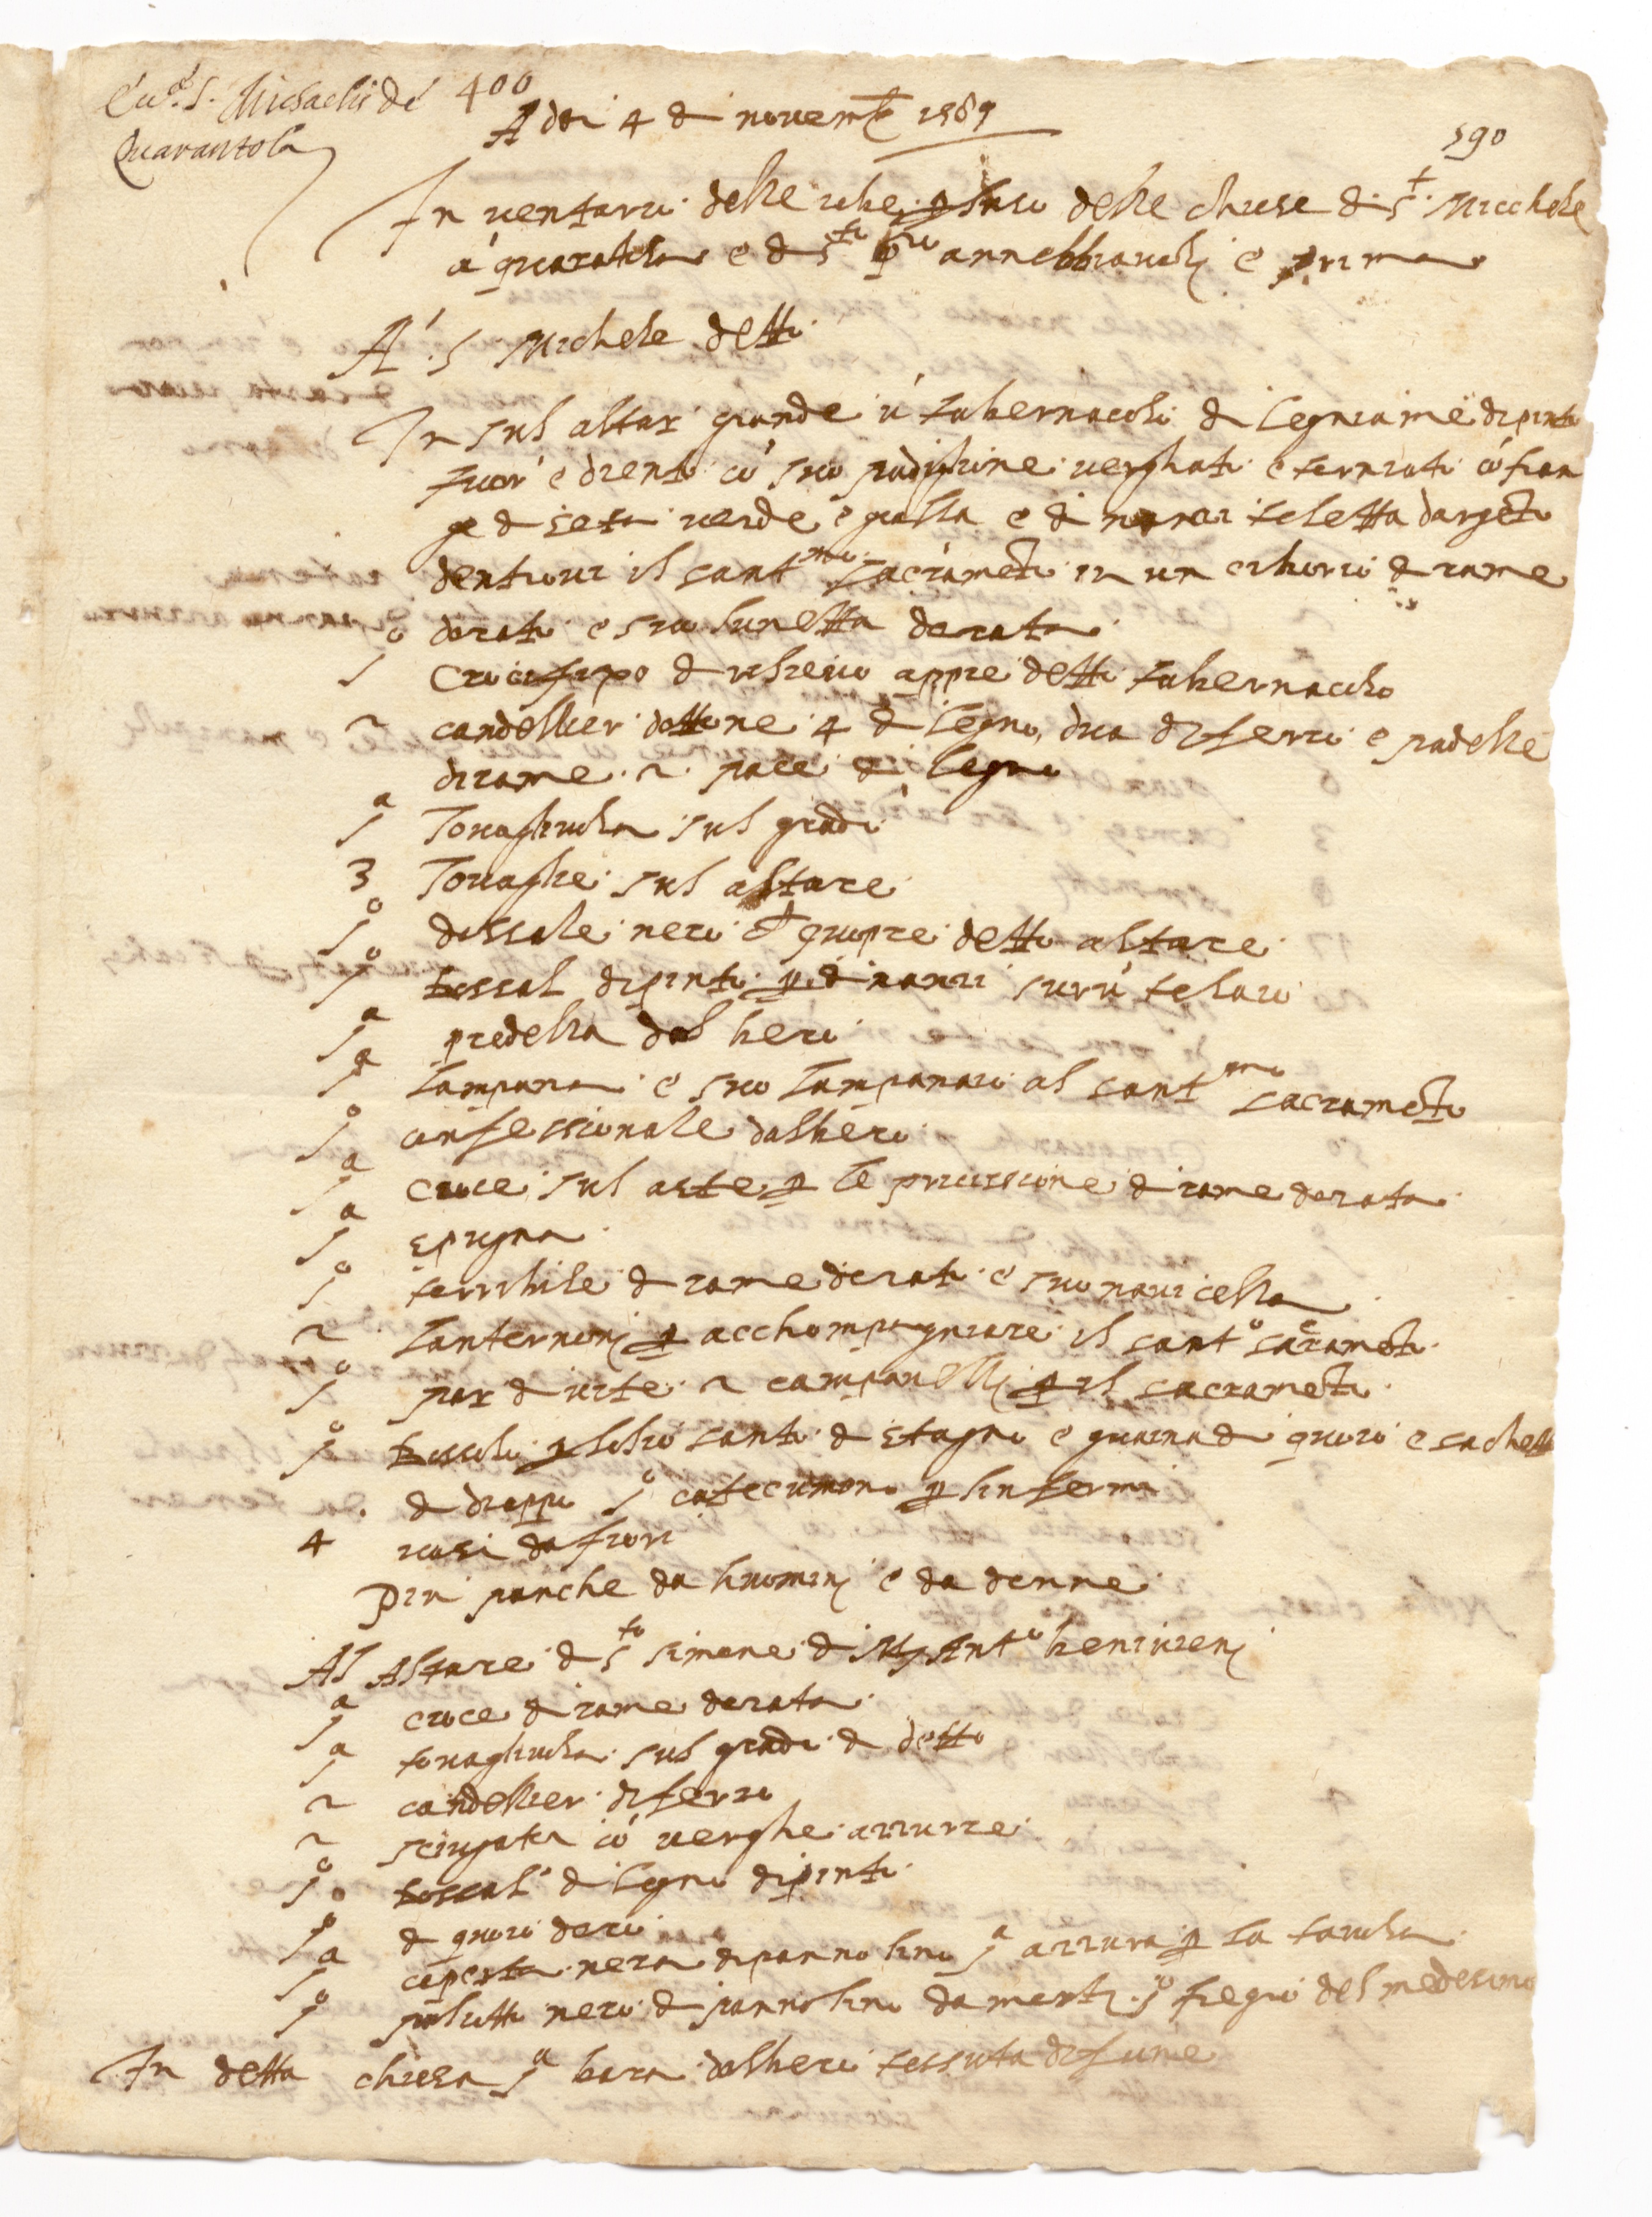 S. Michaelis de 400
Quarantola
A di 4 di novemb 1589
590
In ventario delle robe p luso delle chiese di s.t Micchele
a quaratola e di s.to p.ro annebbiavoli e prima
A s Michele detto
In sul altar grande ù tabernacolo di legniame dipinto
fuor e drento cò suo padiglione verghato e forniato cò fran
ge di seta verde e gialla e di teletta dargeto
dentrovi il sant.mo sacrameto in un ciborio di rame
dorato e sua lunetta dorata
1o crocifisso di rilievo appie detto tabernacolo
2 candellier dottone 4 di legno, dua di ferro e padelle
di rame 2 pace di legno
1a Tovagliuola sul grado
3 Tovaglie sul altare
1o dossale nero p quopre detto altare
1o dossal dipinto p dinanzi sur ù telaio
1a predella dalbero
1a Lampana e suo lampanaio al sant.mo sacrameto
1o confessionale dalbero
1a croce sul aste p le prucissione di rame dorata
1a spugna
1o terribile di rame dorato e suo navicella
2 Lanternoni p acchompagniare il sant.o sacrameto
1o par di 2 campanelli p il sacrameto
1o bossolo p lolio santo di stagno e guaina di quoio e sachetto
di drappo 1o catecumono p linfermi
4 vasi da fiori
Piu panche da huomini e da donne
Al Altare di s.to simone di Ant.o benivieni
1a croce di rame dorata
1a tovagliuola sul grado di detto
2 candellier di ferro
2 sciugatoi cò verghe azzurre
1o dossal di legno dipinto
1o di quoio doro
1a coperta nera di panno lino 1a azzura p la tavola
1o paliotto nero di panno lino da morti 1o fregio del medesimo
In detta chiesa 1a bara dalbero tessuta di fune